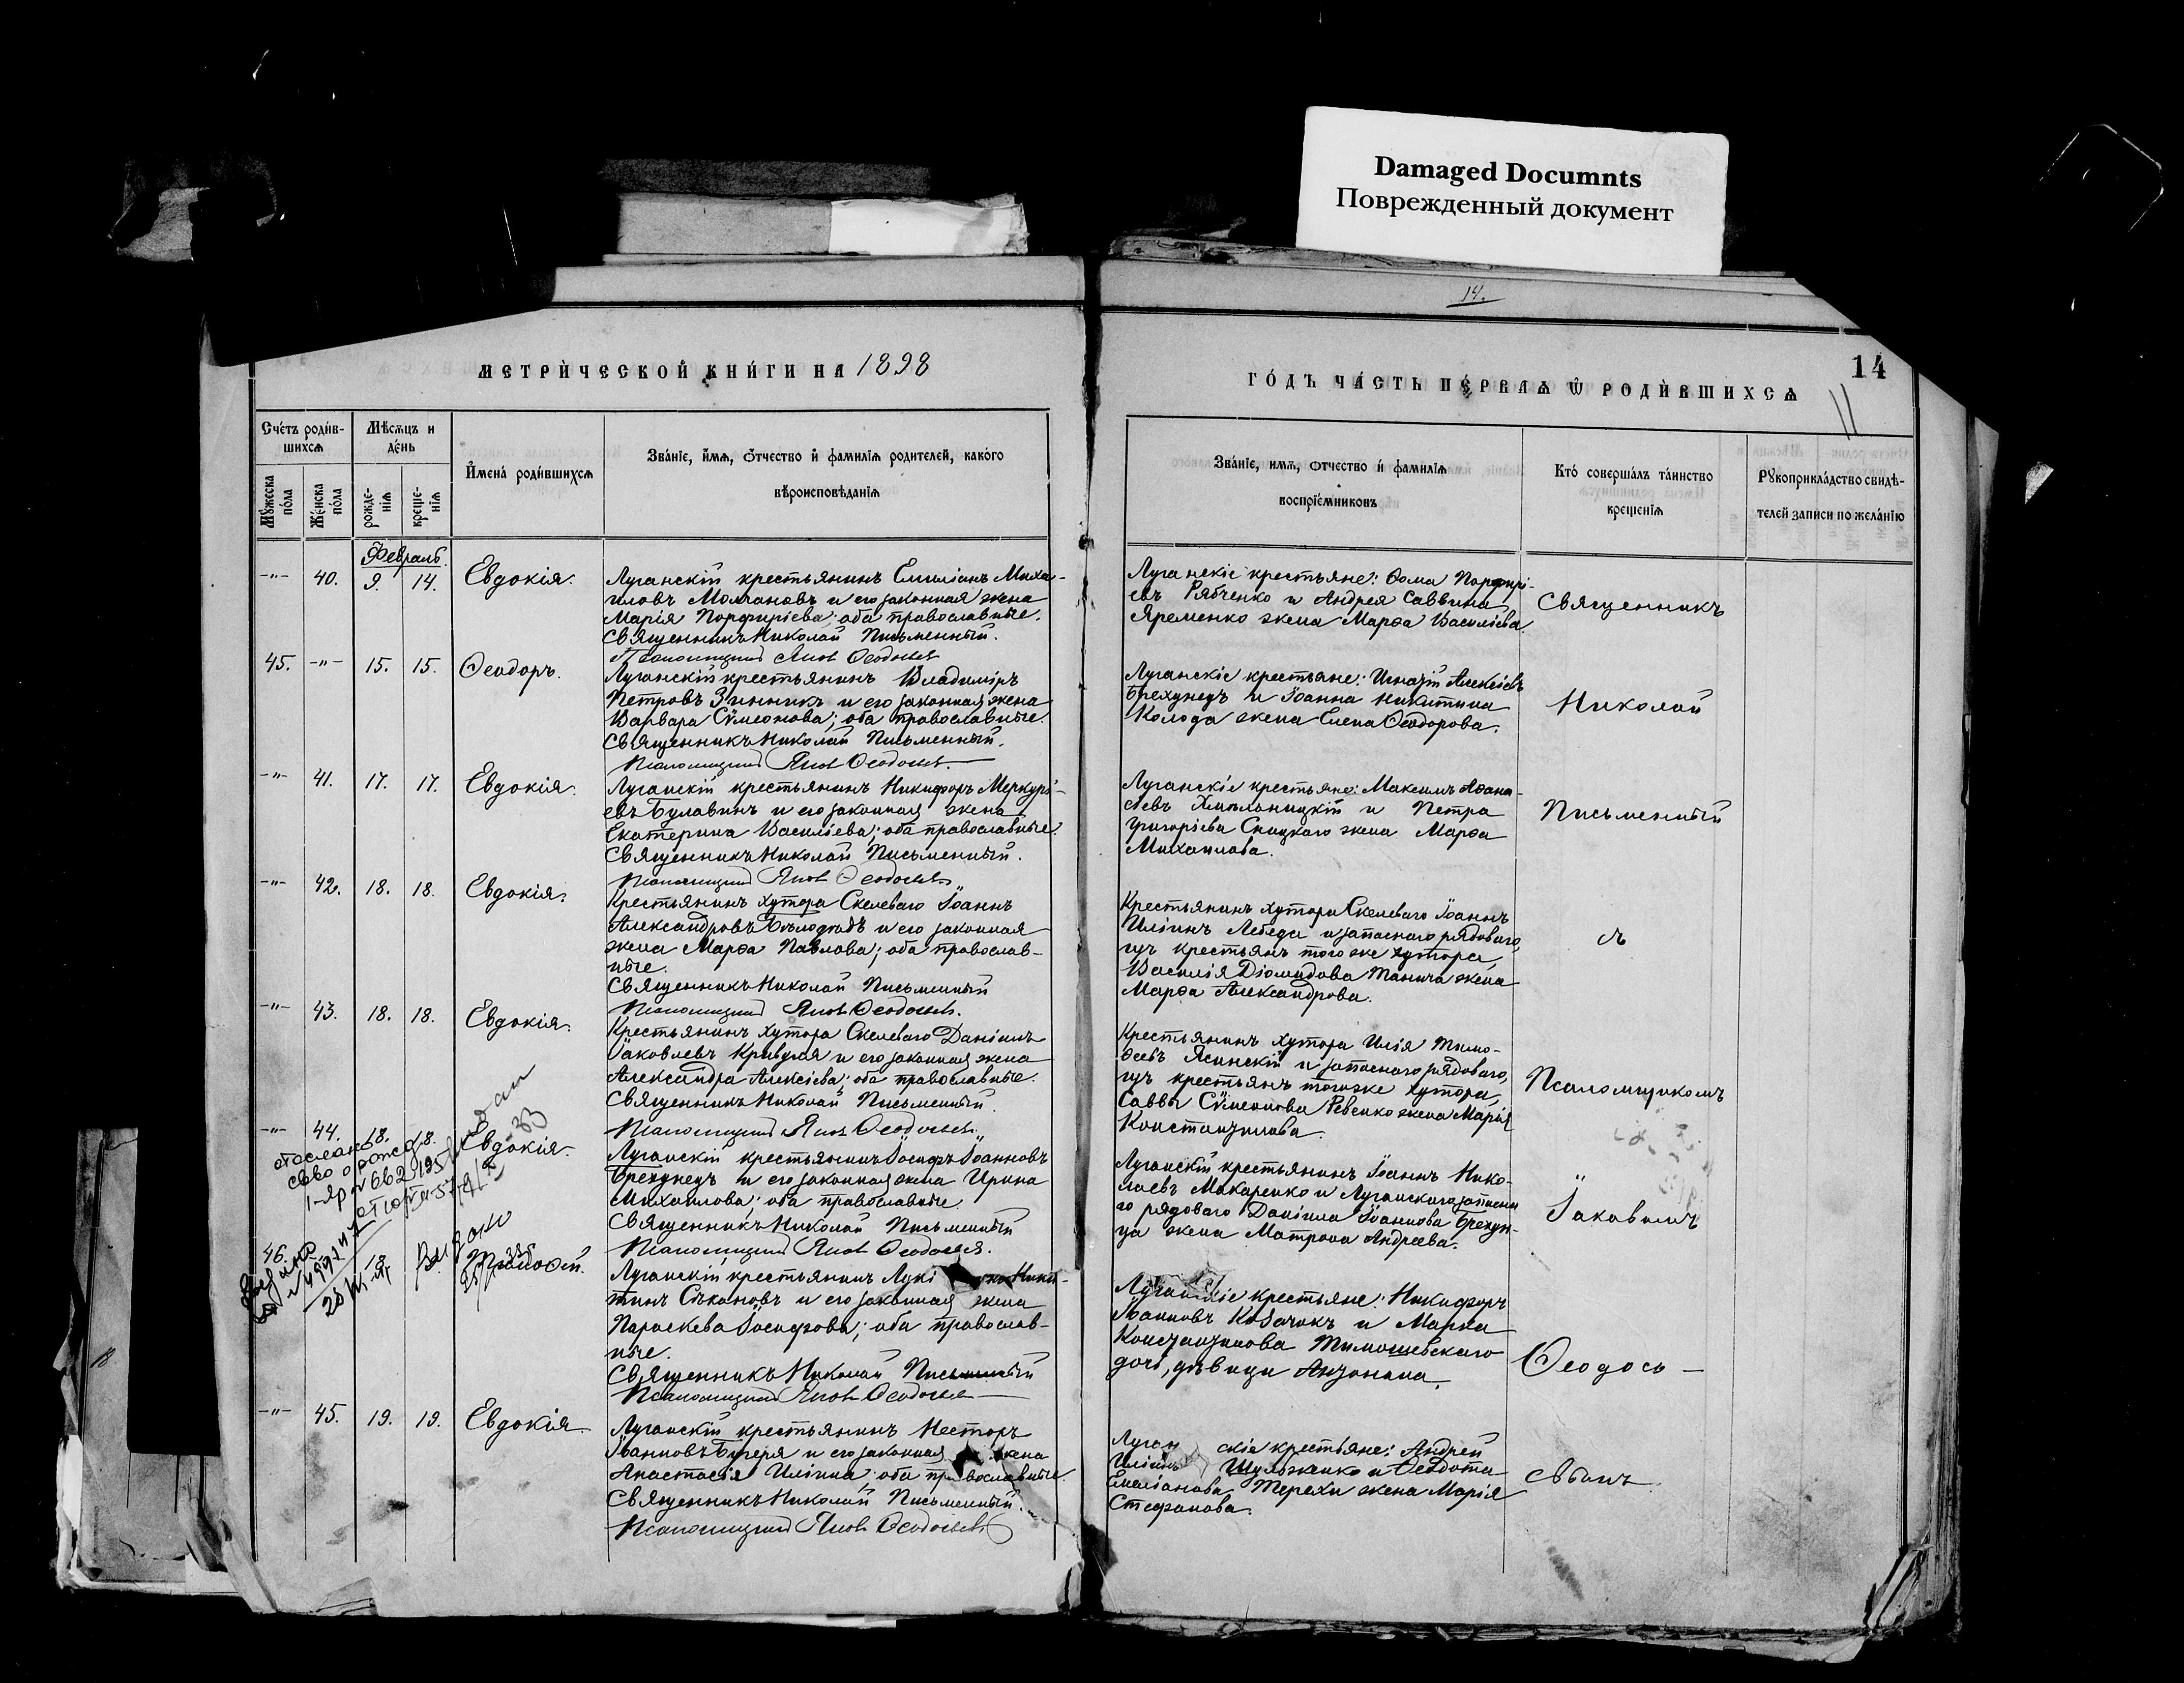 Damaged Documnts
Поврежденный документ
14.
14
МЕТРИ́ЧЕСКОЙ КНИ́ГИ НА 1898
ГО́ДЪ ЧА́СТЬ ПЕ́РВАѦ Ѿ РОДИ́ВШИХСѦ
Сче́тъ роди́в-
шихсѧ
Мѣсѧцъ и
де́нь
И҆мена̀ роди́вшихсѧ
Зва́нїе, и҆́мѧ, ѻ҆́тчество и҆ фамилїѧ родителей, како́го
вѣроисповѣданїѧ
Мꙋ́жеска
по́ла
Же́нска
по́ла
рожде-
нїѧ
креще-
нїѧ
Зва́нїе, имѧ, ѻтчество и҆ фамилїѧ
воспрїе́мниковъ
Кто̀ соверша́лъ та́инство
креще́нїѧ
Рꙋкоприкла́дство свидѣ-
телей записи по жела́нїю
Февраль
-"- 40. 9. 14. Евдокія.
Луганскій крестьянинъ Емиліанъ Миха-
иловъ Молчановъ и его законная жена
Марія Порфиріева; оба православные.
Священникъ Николай Письменный.
Луганскіе крестьяне: Ѳома Порфирі-
евъ Рябченко и Андрея Саввина
Яременко жена Марѳа Василіева.
Священникъ
45. -"- 15. 15. Ѳеодоръ.
Луганскій крестьянинъ Владиміръ
Петровъ Зинникъ и его законная жена
Варвара Сѵмеонова; оба православные.
Священникъ Николай Письменный.
Луганскіе крестьяне: Игнатій Алексіевъ
Брехунецъ и Іоанна Никитина
Колода жена Елена Ѳеодорова.
Николай
-"- 41. 17. 17. Евдокія.
Луганскій крестьянинъ Никифоръ Меркурі-
евъ Булавинъ и его законная жена
Екатерина Василіева; оба православные.
Священникъ Николай Письменный.
Луганскіе крестьяне: Максимъ Аѳана-
сіевъ Хмельницкій и Петра
Григоріева Сницкаго жена Марѳа
Михаилова.
Письменный
-"- 42. 18. 18. Евдокія.
Крестьянинъ хутора Скелеваго Іоаннъ
Александровъ Бѣлодѣдъ и его законная
жена Марѳа Павлова; оба православ-
ные.
Священникъ Николай Письменный
Крестьянинъ хутора Скелеваго Іоаннъ
Иліинъ Лебеда и запаснаго рядоваго,
изъ крестьянъ того же хутора,
Василія Діомидова жена
Марѳа Александрова.
съ
-"- 43. 18. 18. Евдокія.
Крестьянинъ хутора Скелеваго Даніилъ
Іаковлевъ Кривуля и его законная жена
Александра Алексіева; оба православные.
Священникъ Николай Письменный.
Крестьянинъ хутора Илія Тимо-
ѳеевъ Ясинскій и запаснаго рядоваго,
изъ крестьянъ того же хутора,
Саввы Сѵмеонова Ревенко жена Марія
Константинова.
Псаломщикомъ
-"- 44. 18. 18. Евдокія.
Луганскій крестьянинъ Іосифъ Іоанновъ
Брехунецъ и его законная жена Ирина
Михаилова; оба православные.
Священникъ Николай Письменный
Луганскій крестьянинъ Іоаннъ Нико-
лаевъ Макаренко и Луганскаго запасна-
го рядоваго Даніила Іоаннова Брехун-
ца жена Матрона Андреева.
Іаковомъ
46. 18.
Луганскій крестьянинъ Ники-
тинъ Сѣкановъ и его законная жена
Параскева Іосифова; оба православ-
ные.
Священникъ Николай Письменный
Луганскіе крестьяне: Никифоръ
Іоанновъ Козачокъ и Марка
Константинова Тимошевскаго
дочь, дѣвица Антонина.
Ѳеодось-
-"- 45. 19. 19. Евдокія.
Луганскій крестьянинъ Несторъ
Іоанновъ Бугеря и его законная жена
Анастасія Иліина; оба православные.
Священникъ Николай Письменный.
Луганскіе крестьяне: Андрей
Иліинъ Шульженко и Ѳеодота
Емеліанова Терехи жена Марія
Стефанова.
евымъ